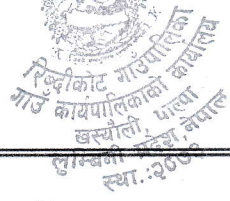 रिब्दीकोट गाउँपालिका
गाउँ कार्यपालिकाको कार्यालय
खस्यौली, पाल्पा
लुम्बिनी प्रदेश, नेपाल
स्था.:२०७३